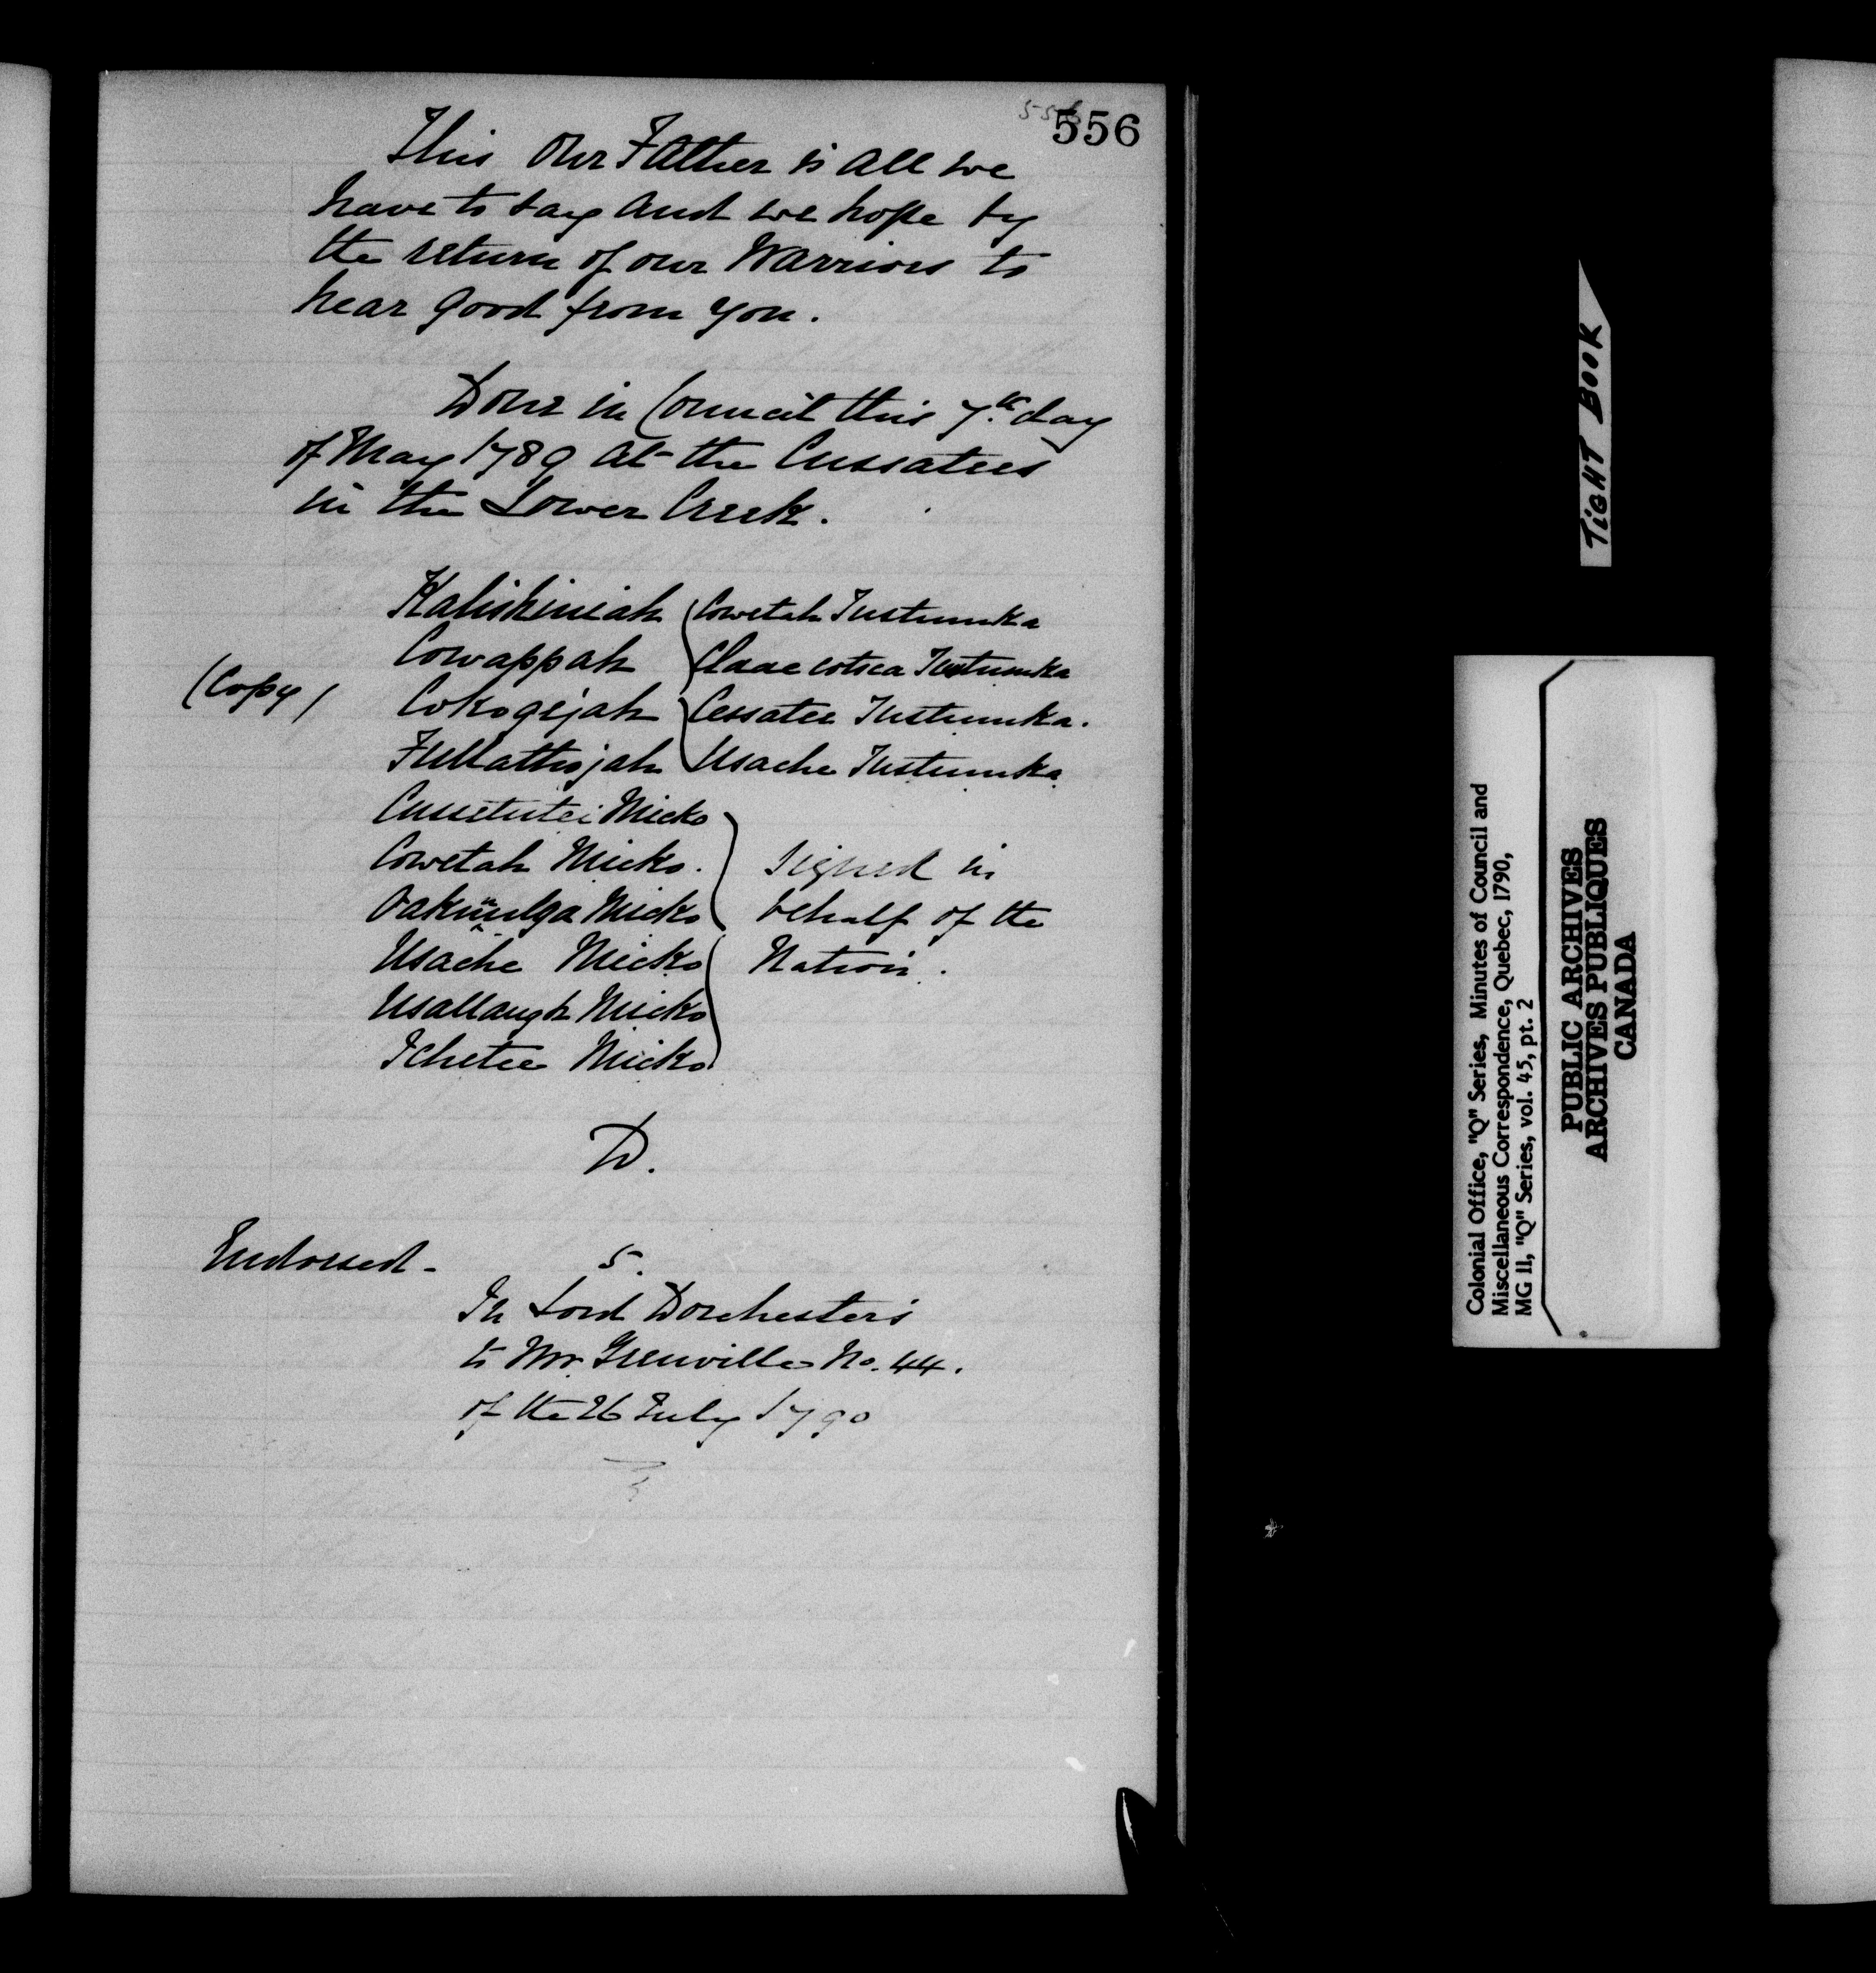 556
This Our Father is all we
have to say and we hope by
the return of our Warriors to
hear good from you.
Done in Council this 7th day
of May 1789 at the Cussatees
in the Lower Creek.
Kaliskiniah Cowetah Tustunuka
Cowappah Tustunuka
(Copy) Cokogejah Cessatee Tustunuka.
Fullathojah Usache Tustunuka
Cussetutei Micko
Cowetah Micko. Signed in
Oakmulga Micko behalf of the
Usache Micko Nation.
Usallaugh Micko
Ichetee Micko
D.
Endorsed - 5.
In Lord Dorchester's
to Mr. Grenville No. 44.
of the 26 July 1790
TIGHT BOOK
Colonial Office, "Q" Series, Minutes of Council and
Miscellaneous Correspondence, Quebec, 1790,
MG 11, "Q" Series, vol. 45, pt. 2
PUBLIC ARCHIVES
ARCHIVES PUBLIQUES
CANADA